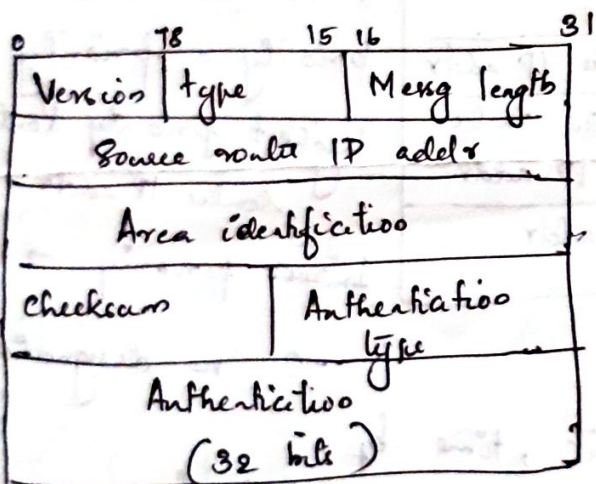 0 78 15 16 31
Version type Messg length
Source router IP addr
Area identification
checksum Authentication
type
Authentication
(32 bits)